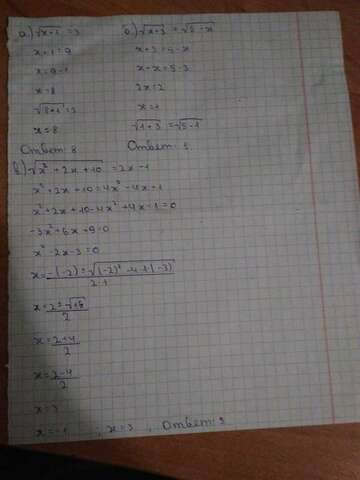 а.) √x+1 = 3
x+1=9
x=9-1
x=8
√8+1=3
x=8
Ответ: 8
б.) √x+3 = √5-x
x+3=5-x
x+x=5-3
2x=2
x=1
√1+3 = √5-1
Ответ: 1.
в.) √x²+2x+10 = 2x-1
x²+2x+10=4x²-4x+1
x²+2x+10-4x²+4x-1=0
-3x²+6x+9=0
x²-2x-3=0
x=-(-2)±√(-2)²-4·1·(-3)
2·1
x=2±√16
2
x=2+4
2
x=2-4
2
x=3
x=-1 ; x=3 , Ответ: 3